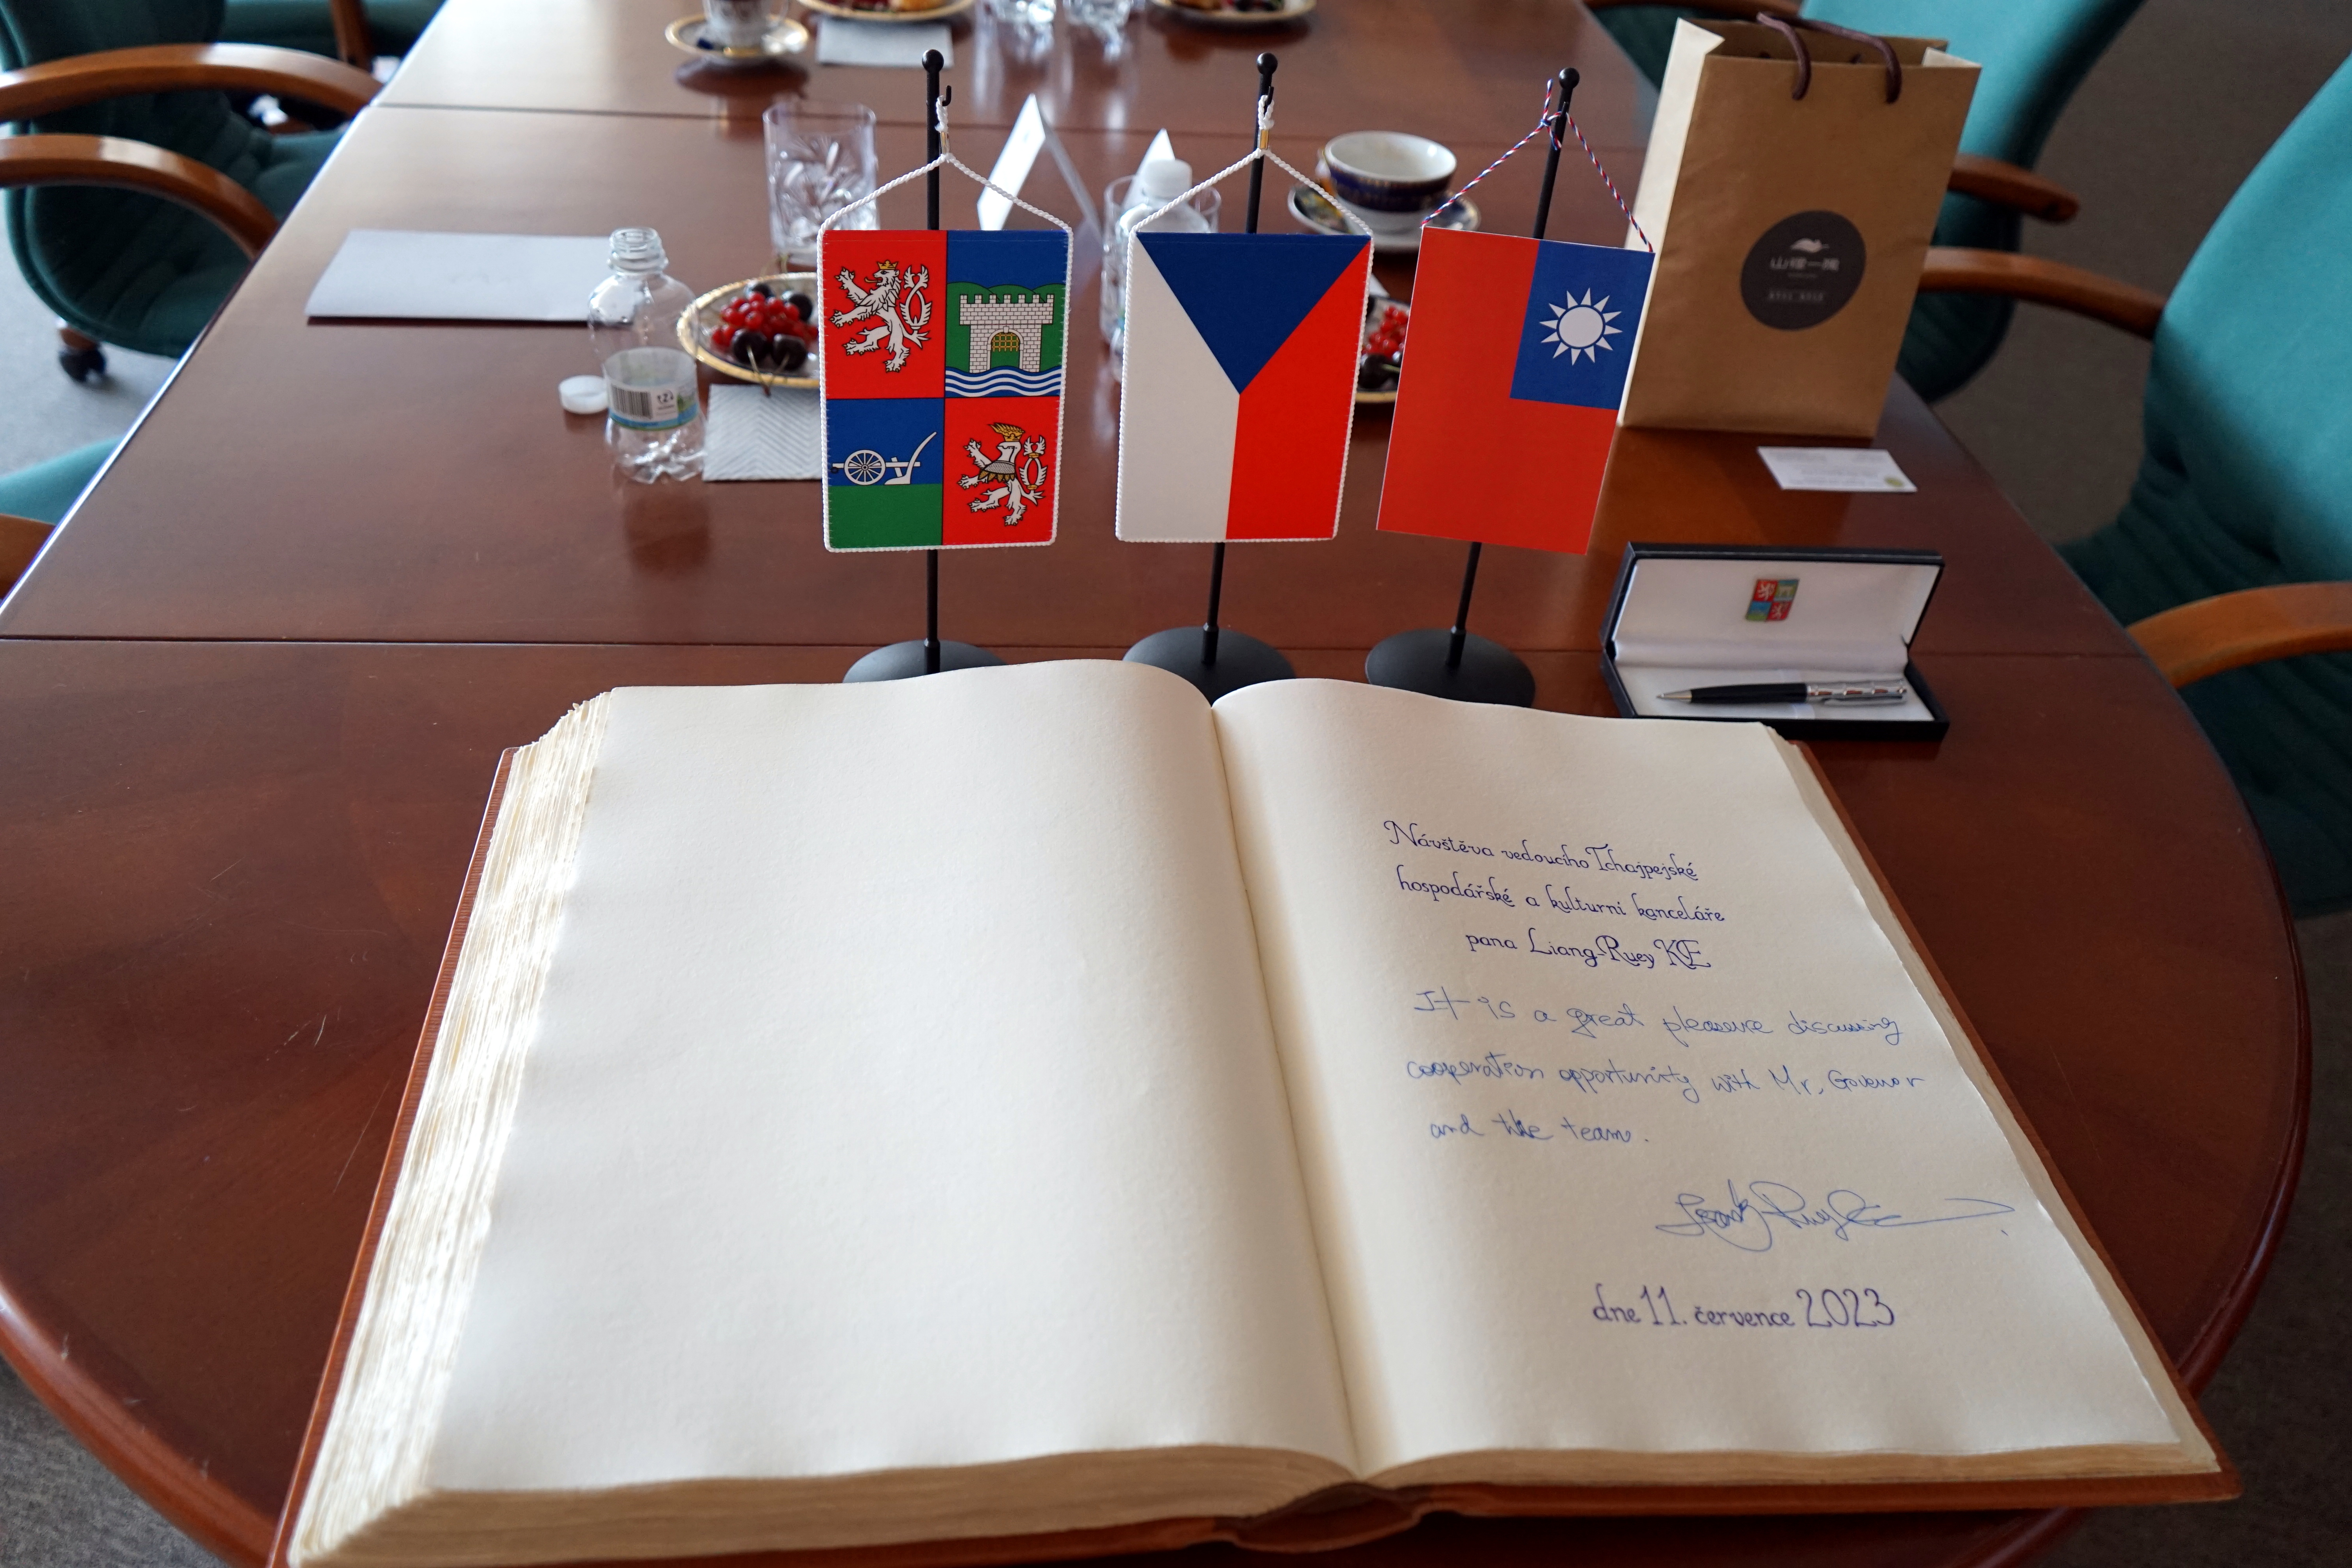 Návštěva vedoucího Tchajpejské
hospodářské a kulturní kanceláře
pana Liang-Ruey KE
It is a great pleasure discussing
cooperation opportunity with Mr. Govenor
and the team.
dne 11. července 2023